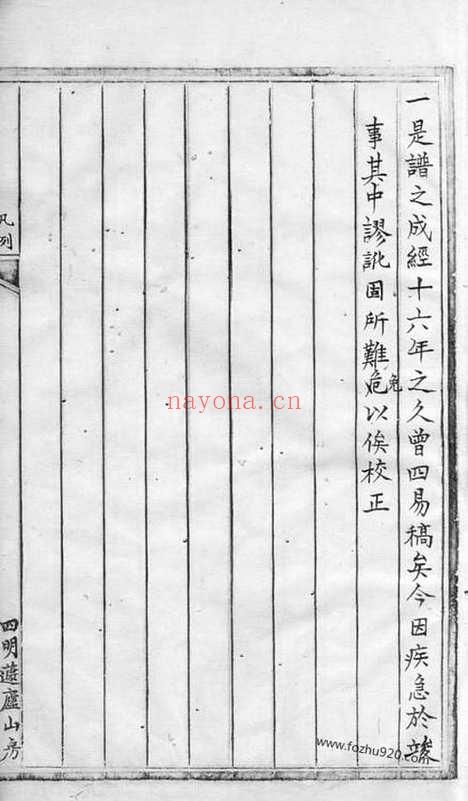 一是譜之成經十六年之久曾四易稿矣今因疾急於竣
事其中謬訛固所難危以俟校正
免
凡列
四明蘧廬山房
nayona.cn
www.fozhu920.com